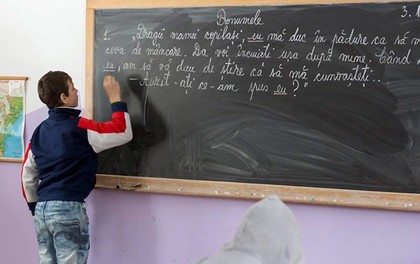 Pronumele
3.
1. „Dragii mamei copilași, eu mă duc în pădure ca să m
ceva de mâncare. Da voi încuieți ușa după mine. Când
eu, am să vă dau de știre ca să mă cunoașteți...
Auzit-ați ce-am spus eu?"